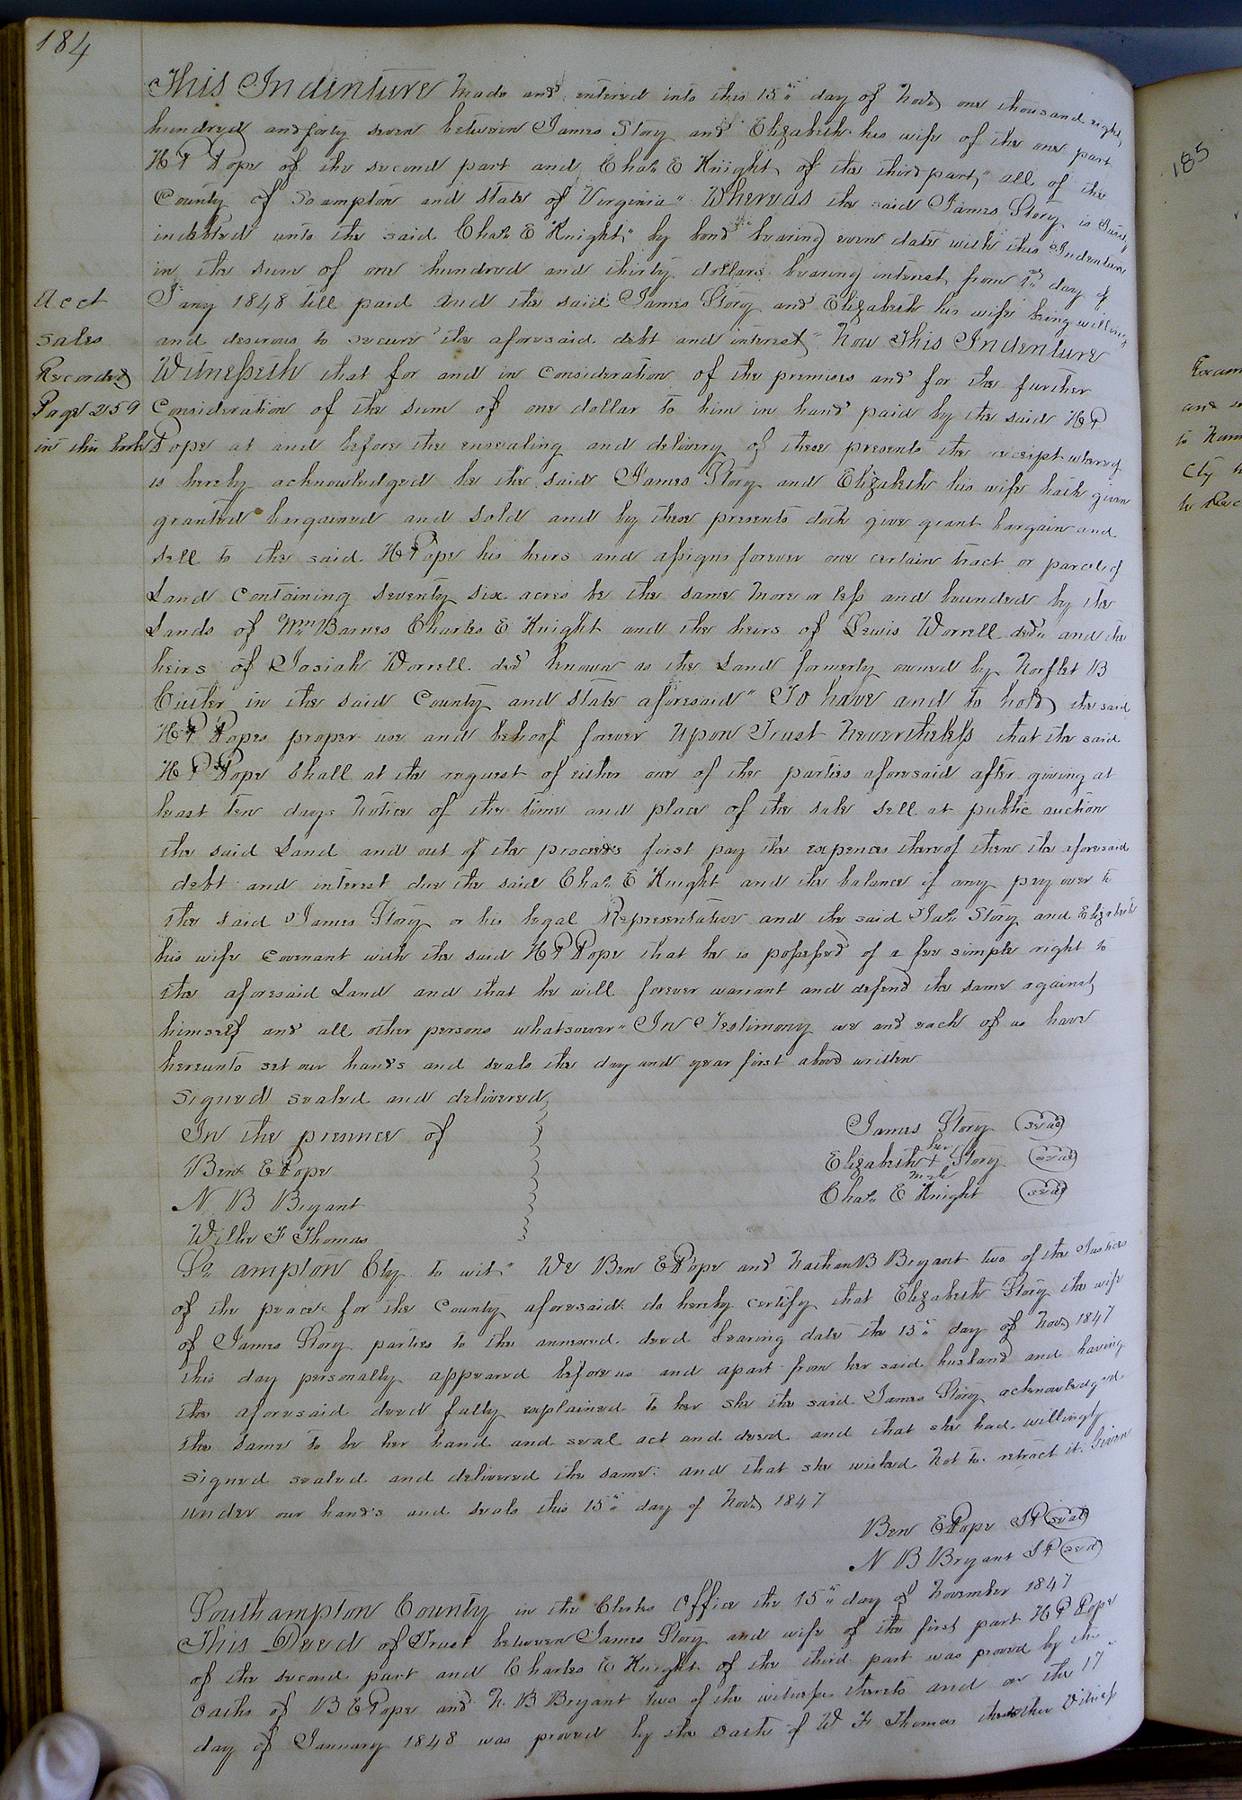 184
This Indenture made and entered into this 15th day of Novr one thousand eight
hundred and forty seven between James Story and Elizabeth his wife of the one part
H P Pope of the second part and Chas E Knight of the third part, all of the
County of So ampton and State of Virginia" Whereas the said James Story is Justly
indebted unto the said Chas E Knight" by bond bearing even date with this Indenture
in the sum of one hundred and thirty dollars bearing interest from 1st day of
Jany 1848 till paid and the said James Story and Elizabeth his wife being willing
and desirous to secure the aforesaid debt and interest" Now This Indenture
Witnesseth that for and in consideration of the premises and for the further
Consideration of the sum of one dollar to him in hand paid by the said H P
Pope at and before the ensealing and delivery of these presents the receipt whereof
is hereby acknowledged he the said James Story and Elizabeth his wife hath given
granted bargained and sold and by these presents doth give grant bargain and
sell to the said H P Pope his heirs and assigns forever one certain tract or parcel of
Land Containing seventy six acres be the same more or less and bounded by the
Lands of Wm Barnes Charles E Knight and the heirs of Lewis Worrell decd and the
heirs of Josiah Worrell decd known as the Land formerly owned by Norflet B
in the said County and State aforesaid" To have and to hold the said
H P Popes proper use and behoof forever Upon Trust Nevertheless that the said
H P Pope Shall at the request of either one of the parties aforesaid after giving at
least ten days notice of the time and place of the sale sell at public auction
the said Land and out of the proceeds first pay the expences thereof then the aforesaid
debt and interest due the said Chas E Knight and the balance if any pay over to
the said James Story or his legal Representative and the said Jas Story and Elizabeth
his wife Covenant with the said H P Pope that he is possessed of a fee simple right to
the aforesaid Land and that he will forever warrant and defend the same against
himself and all other persons whatsoever" In Testimony we and each of us have
hereunto set our hands and seals the day and year first above written
Signed sealed and delivered
In the presence of
Benj E Pope
N B Bryant
F Thomas
James Story (seal)
her
Elizabeth + Story (seal)
mark
Chas E Knight (seal)
So ampton Cty to wit" We Ben E Pope and Nathan B Bryant two of the Justices
of the peace for the County aforesaid do hereby certify that Elizabeth Story the wife
of James Story parties to the annexed deed bearing date the 15th day of Novr 1847
this day personally appeared before us and apart from her said husband and having
the aforesaid deed fully explained to her she the said James Story acknowledged
the same to be her hand and seal act and deed and that she had willingly
signed sealed and delivered the same and that she wished not to retract it Given
under our hands and seals this 15th day of Novr 1847
Ben E Pope JP (seal)
N B Bryant JP (seal)
Southampton County in the Clerks Office the 15th day of November 1847
This Deed of Trust between James Story and wife of the first part H P Pope
of the second part and Charles E Knight of the third part was proved by the
oaths of B E Pope and N B Bryant two of the witnesses thereto and on the 17
day of January 1848 was proved by the oath of W F Thomas the other witness
Acct
Sales
Recorded
Page 259
in this book
185
and
to
Cty
to Rec